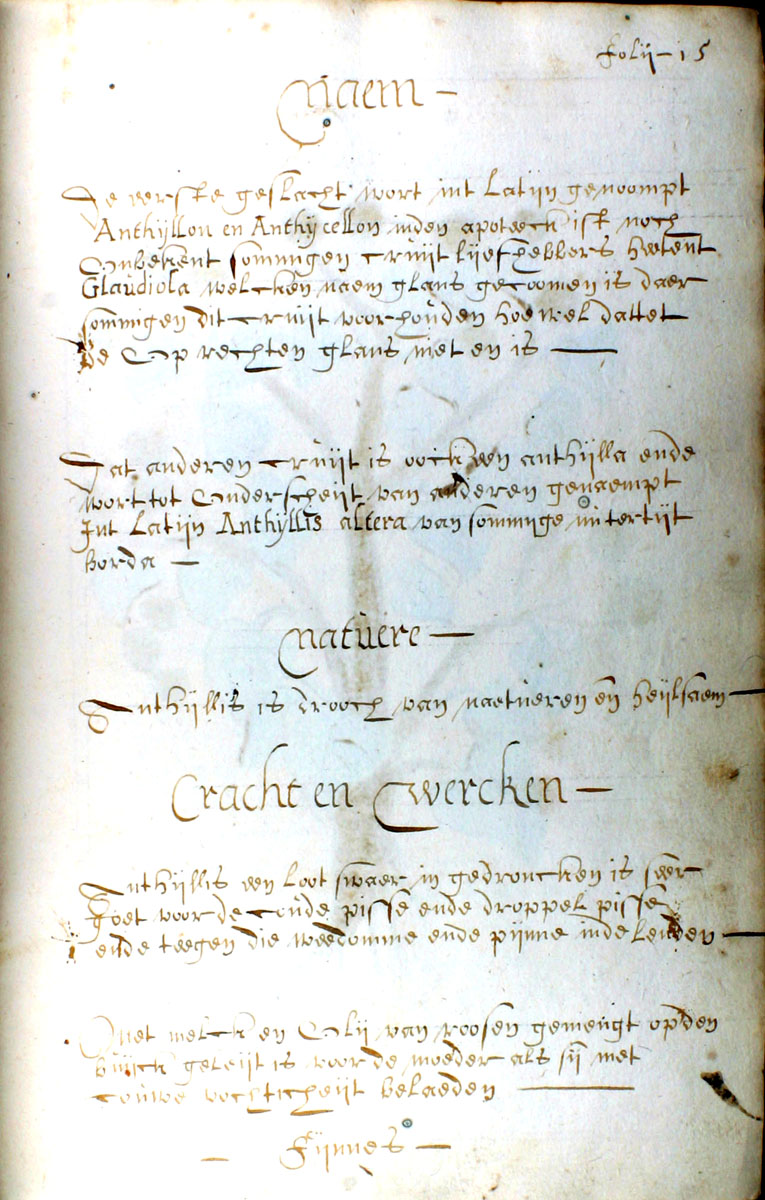 folij - 15
Naem -
De eerste geslacht wort int Latijn genoompt
Anthyllon en Anthycellon inden apoteeck ist noch
Onbekent sommigen cruijt lijefhebbers heetent
Glaudiola welcken naem glaus gecoomen is daer
sommigen dit cruijt voorhouden hoe wel dattet
de Oprechten glaus niet en is —
Dat anderen cruijt is oock een anthijlla ende
wort tot Onderscheijt van anderen genaempt
Int Latijn Anthyllis altera van sommige intertijt
borda —
Natuere —
Anthijllis is drooch van naetueren en heijlsaem —
Cracht en Wercken —
Anthijllis een loot swaer in gedroncken is seer
goet voor de coude pisse ende droppel pisse
ende teegen die weedomme ende pijnne inde lenden —
Met melck en Olij van roosen gemengt op den
buijck geleijt is voor de moeder als sij met
couwe vochticheijt belaeden —
— Fijnnes —